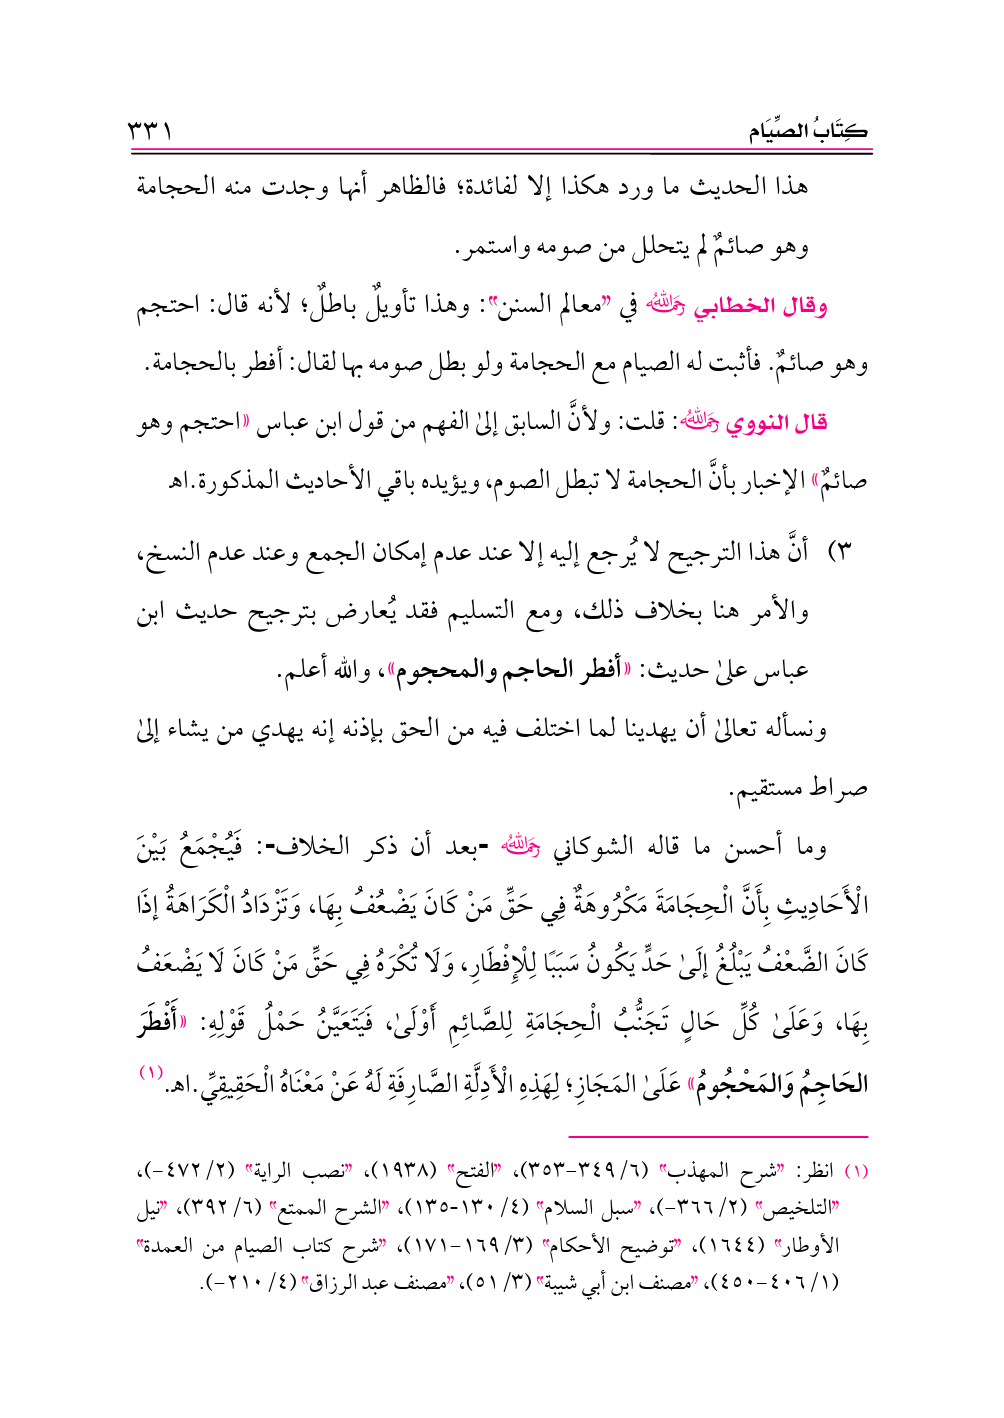 كِتَابُ الصِّيَام ٣٣١
هذا الحديث ما ورد هكذا إلا لفائدة؛ فالظاهر أنها وجدت منه الحجامة
وهو صائمٌ لم يتحلل من صومه واستمر.
وقال الخطابي رَحِمَهُ اللهُ في "معالم السنن": وهذا تأويلٌ باطلٌ؛ لأنه قال: احتجم
وهو صائمٌ. فأثبت له الصيام مع الحجامة ولو بطل صومه بها لقال: أفطر بالحجامة.
قال النووي رَحِمَهُ اللهُ: قلت: ولأنَّ السابق إلىٰ الفهم من قول ابن عباس «احتجم وهو
صائمٌ» الإخبار بأنَّ الحجامة لا تبطل الصوم، ويؤيده باقي الأحاديث المذكورة.اهـ
٣) أنَّ هذا الترجيح لا يُرجع إليه إلا عند عدم إمكان الجمع وعند عدم النسخ،
والأمر هنا بخلاف ذلك، ومع التسليم فقد يُعارض بترجيح حديث ابن
عباس علىٰ حديث: «أفطر الحاجم والمحجوم»، والله أعلم.
ونسأله تعالىٰ أن يهدينا لما اختلف فيه من الحق بإذنه إنه يهدي من يشاء إلىٰ
صراط مستقيم.
وما أحسن ما قاله الشوكاني رَحِمَهُ اللهُ -بعد أن ذكر الخلاف-: فَيُجْمَعُ بَيْنَ
الْأَحَادِيثِ بِأَنَّ الْحِجَامَةَ مَكْرُوهَةٌ فِي حَقِّ مَنْ كَانَ يَضْعُفُ بِهَا، وَتَزْدَادُ الْكَرَاهَةُ إذَا
كَانَ الضَّعْفُ يَبْلُغُ إلَىٰ حَدٍّ يَكُونُ سَبَبًا لِلْإِفْطَارِ، وَلَا تُكْرَهُ فِي حَقِّ مَنْ كَانَ لَا يَضْعَفُ
بِهَا، وَعَلَىٰ كُلِّ حَالٍ تَجَنُّبُ الْحِجَامَةِ لِلصَّائِمِ أَوْلَىٰ، فَيَتَعَيَّنُ حَمْلُ قَوْلِهِ: «أَفْطَرَ
الحَاجِمُ وَالمَحْجُومُ» عَلَىٰ المَجَازِ؛ لِهَذِهِ الْأَدِلَّةِ الصَّارِفَةِ لَهُ عَنْ مَعْنَاهُ الْحَقِيقِيِّ.اهـ.(١)
(١) انظر: "شرح المهذب" (٦/ ٣٤٩-٣٥٣)، "الفتح" (١٩٣٨)، "نصب الراية" (٢/ ٤٧٢-)،
"التلخيص" (٢/ ٣٦٦-)، "سبل السلام" (٤/ ١٣٠-١٣٥)، "الشرح الممتع" (٦/ ٣٩٢)، "نيل
الأوطار" (١٦٤٤)، "توضيح الأحكام" (٣/ ١٦٩-١٧١)، "شرح كتاب الصيام من العمدة"
(١/ ٤٠٦-٤٥٠)، "مصنف ابن أبي شيبة" (٣/ ٥١)، "مصنف عبد الرزاق" (٤/ ٢١٠-).